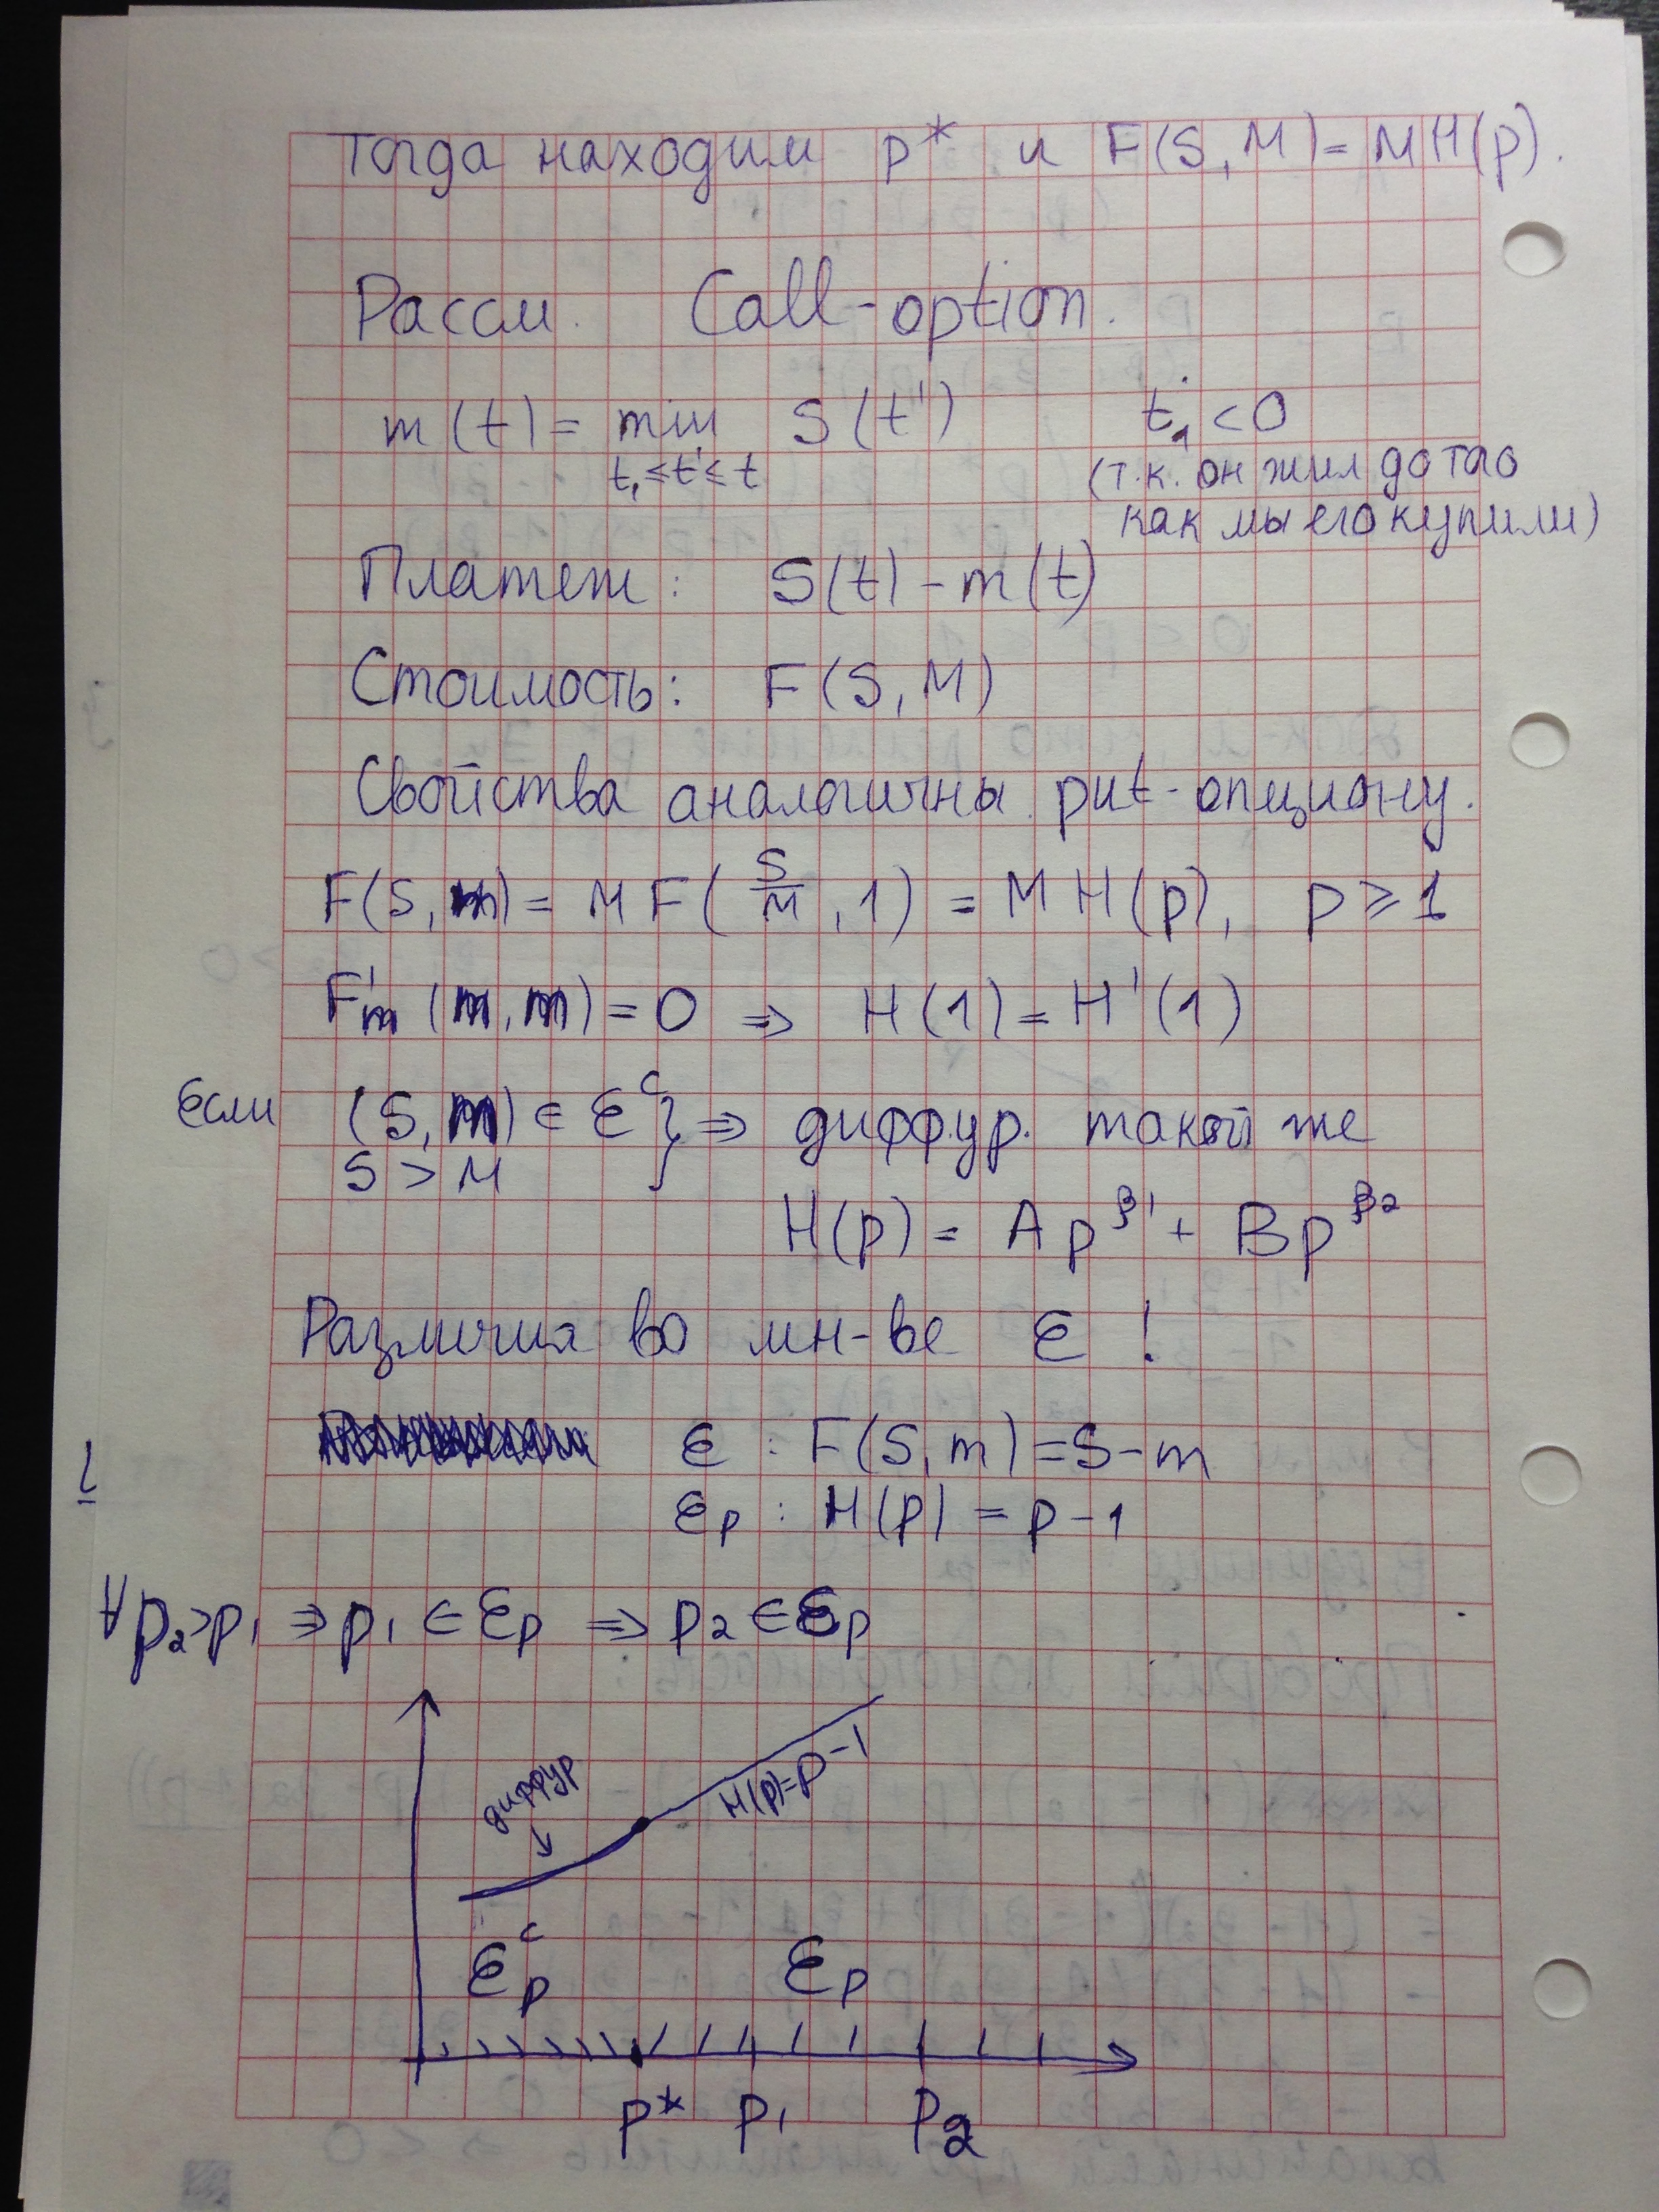 Тогда находим p* и F(S,M)=MH(p).
Рассм. Call-option.
m(t)= min S(t') t₁<0
t₁≤t'≤t
(т.к. он жил до того
как мы его купили)
Платеж: S(t)-m(t)
Стоимость: F(S,M)
Свойства аналогичны put-опциону.
F(S,m)= M F(S/M,1) = M H(p), p≥1
F'm (m,m)=0 ⇒ H(1)=H'(1)
Если (S,m)∈Ɛᶜ} ⇒ диффур. такой же
S>M
H(p)= Ap^β1 + Bp^β2
Различия во мн-ве Ɛ!
Ɛ : F(S,m)=S-m
Ɛp : H(p)=p-1
∀p₂>p₁ ⇒ p₁∈Ɛp ⇒ p₂∈Ɛp
диффур
H(p)=p-1
Ɛᶜp Ɛp
p* p₁ p₂